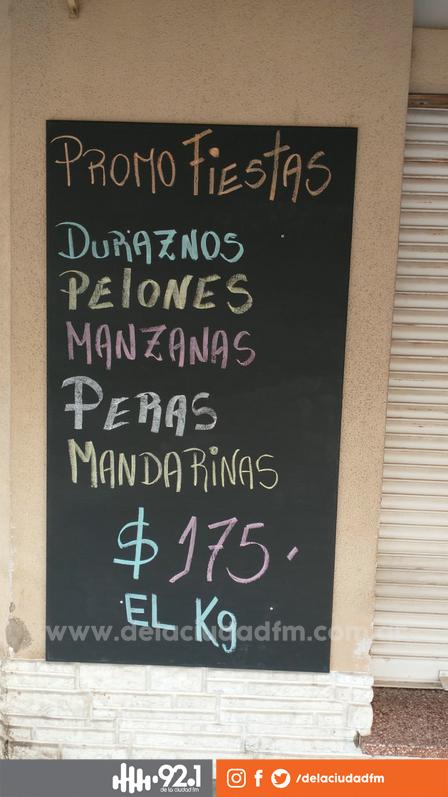 PROMO FiESTAS
DURAZNOS
PElONES
MANZANAS
PERAS
MANDARiNAS
$ 175.
EL Kg
www.delaciudadfm.com.ar
92.1
de la ciudad fm
/delaciudadfm